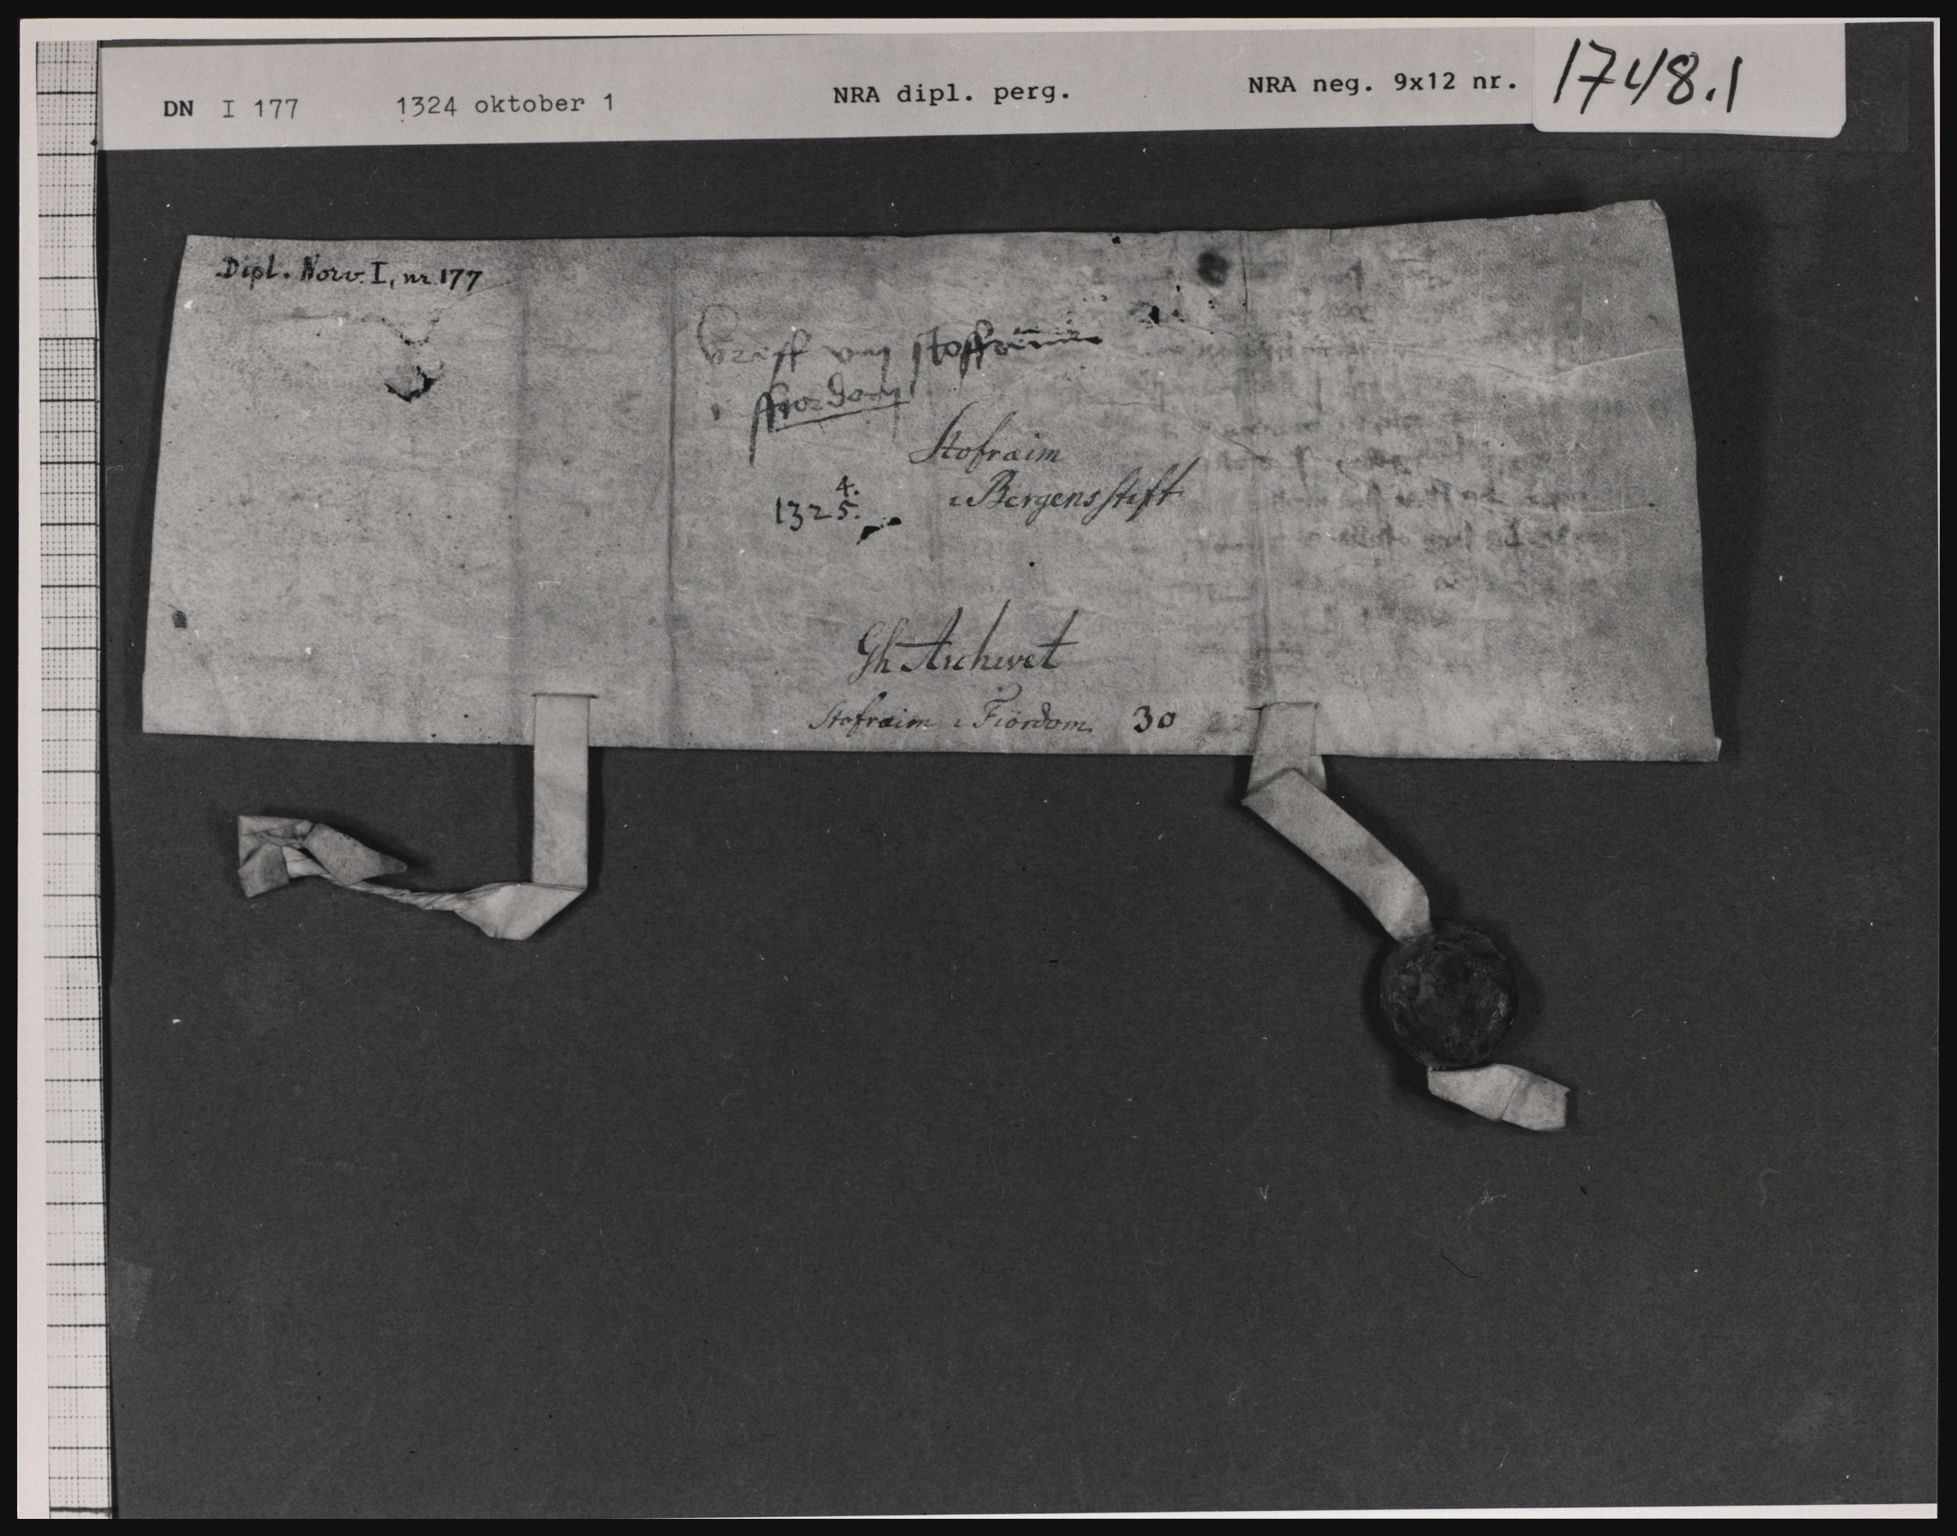 DN I 177 1324 oktober 1 NRA dipl. perg. NRA neg. 9x12 nr. 1748.1
Dipl. Norv. I, nr. 177
breff um stoffreim
i ffiordom
Stofraim
i Bergens stift
4.
1325.
Gh Archivet
Stofraim i Fiördom 30